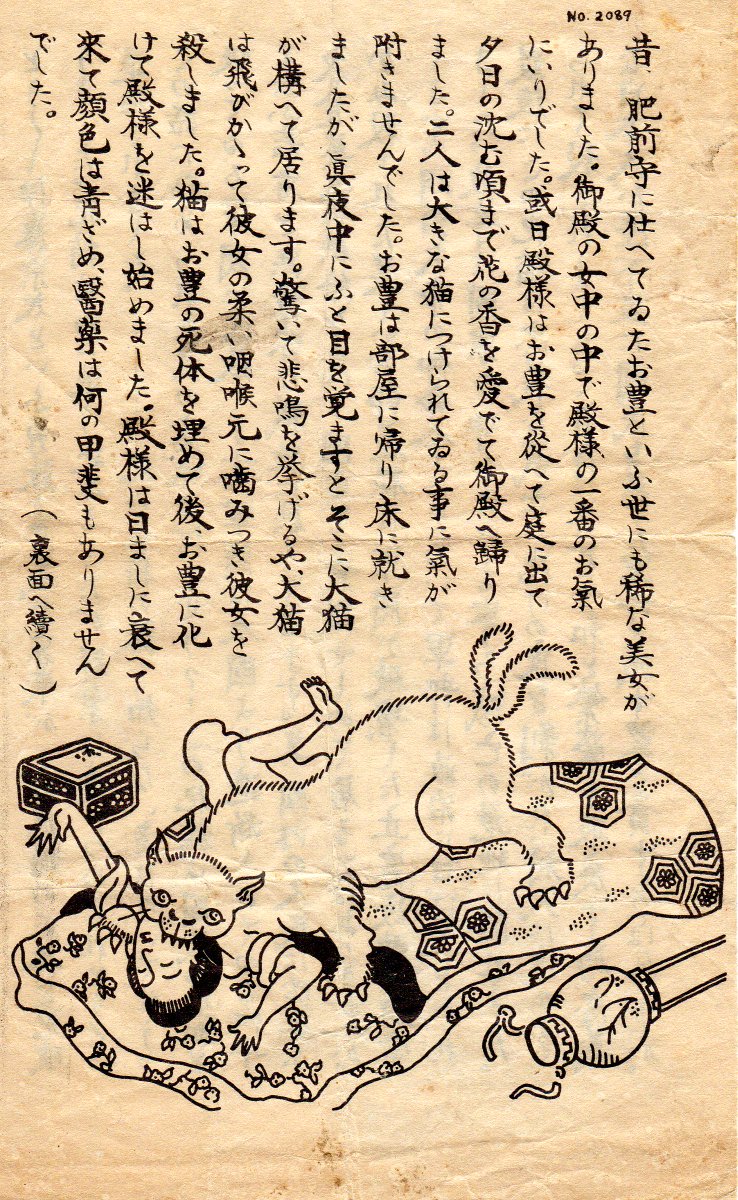 NO. 2089
昔、肥前守に仕へてゐたお豊といふ世にも稀な美女が
ありました。御殿の女中の中で殿様の一番のお氣
にいりでした。或日殿様はお豊を從へて庭に出て
夕日の沈む頃まで花の香を愛でて御殿へ歸り
ました。二人は大きな猫につけられてゐる事に氣が
附きませんでした。お豊は部屋に帰り床に就き
ましたが、眞夜中にふと目を覚ますとそこに大猫
が構へて居ります。驚いて悲鳴を挙げるや、大猫
は飛びかゝって彼女の柔い咽喉元に噛みつき彼女を
殺しました。猫はお豊の死体を埋めて後、お豊に化
けて殿様を迷はし始めました。殿様は日ましに衰へて
來て顔色は靑ざめ、醫藥は何の甲斐もありません
でした。
（裏面へ續く）